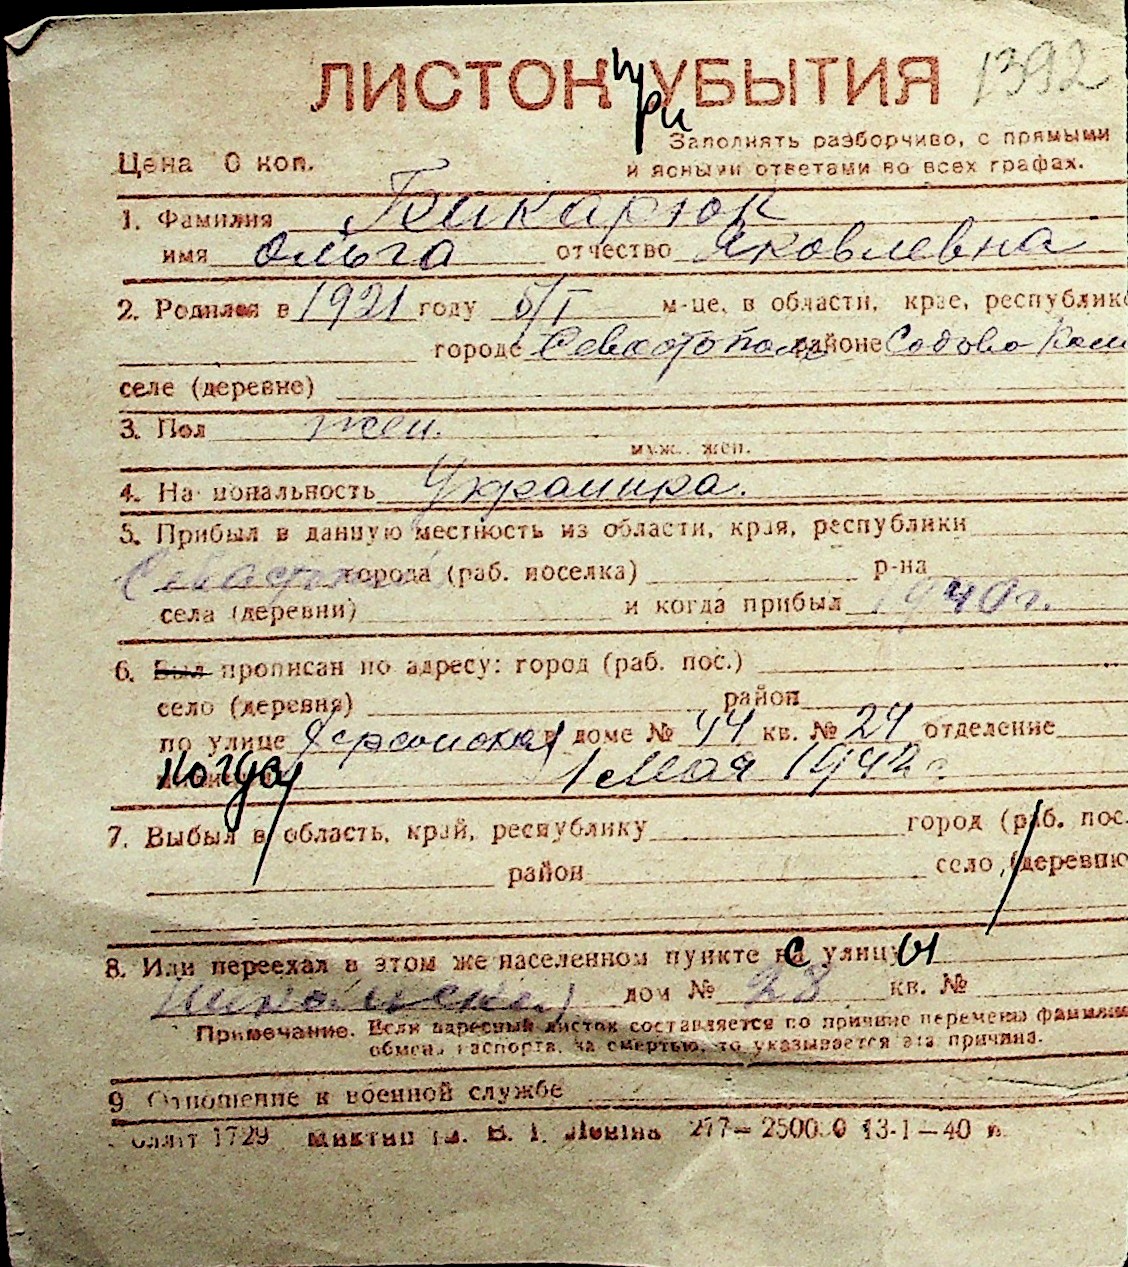 1392
ЛИСТОК при УБЫТИЯ
Заполнять разборчиво, с прямыми
Цена 0 коп.
и ясными ответами во всех графах.
1. Фамилия Бикарюк
имя Ольга отчество Яковлевна
2. Родился в 1921 году 5/I м-це, в области, крае, республике
городе Севастополь районе
селе (деревне)
3. Пол жен.
муж., жен.
4. На иональность Украинка.
5. Прибыл в данную местность из области, края, республики
города (раб. поселка) р-на
села (деревни) и когда прибыл 1940 г.
6. Был прописан по адресу: город (раб. пос.)
село (деревня) район
по улице Херсонская в доме № 44 кв. № 24 отделение
когда 1 Мая 1942 г.
7. Выбыл в область, край, республику город (раб. пос.
район село, (деревню
8. Или переехал в этом же населенном пункте с улицы
дом № 28 кв. №
Примечание. Если адресный листок составляется по причине перемены фамилии
обмена паспорта, за смертью, то указывается эта причина.
9 Отношение к военной службе
1729 277— 2500.0 13-1—40 п.